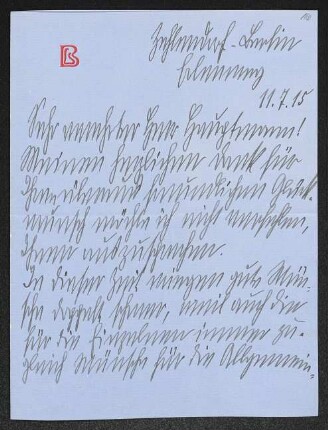 B
Zehlendorf-Berlin
Erlenweg
11.7.15
Sehr verehrter Herr Hauptmann!
Meinen herzlichen Dank für
Ihren überaus freundlichen Glück-
wunsch möchte ich nicht verfehlen,
Ihnen auszusprechen.
In dieser Zeit wiegen gute Wün-
sche doppelt schwer, weil auch die
für die Einzelnen immer zu-
gleich Wünsche für die Allgemein-